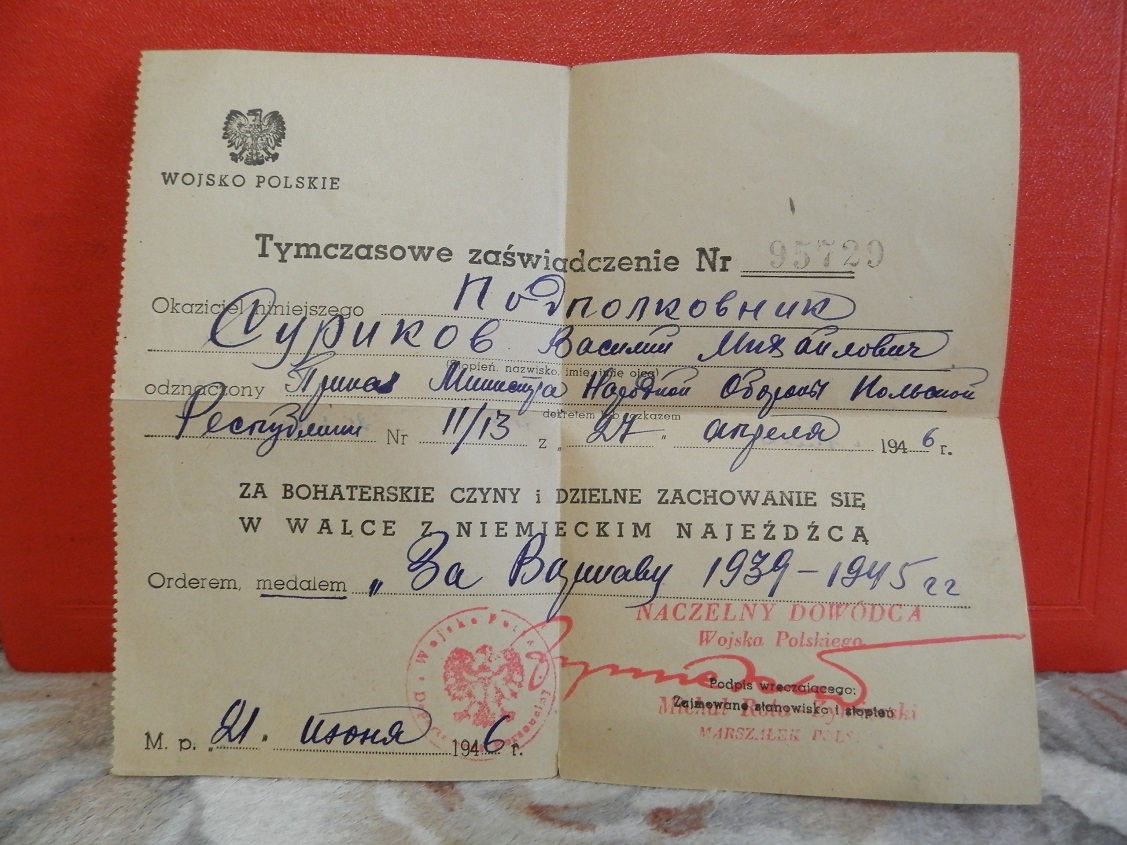 WOJSKO POLSKIE
Tymczasowe zaświadczenie Nr 95729
Okaziciel niniejszego Подполковник
Суриков Василий Михайлович
(Stopień, nazwisko, imię, imię ojca)
odznaczony Приказ Министра Народной Обороны Польской
dekretem lub rozkazem
Республики Nr 11/13 z „27" апреля 1946 r.
ZA BOHATERSKIE CZYNY i DZIELNE ZACHOWANIE SIĘ
W WALCE Z NIEMIECKIM NAJEŹDŹCĄ
Orderem, medalem „За Варшаву 1939-1945 гг
NACZELNY DOWÓDCA
Wojska Polskiego
Podpis wręczającego:
Zajmowane stanowisko i stopień
Michał Rola Żymierski
MARSZAŁEK POLS
M. p. „21" июня 1946 r.
Wojska